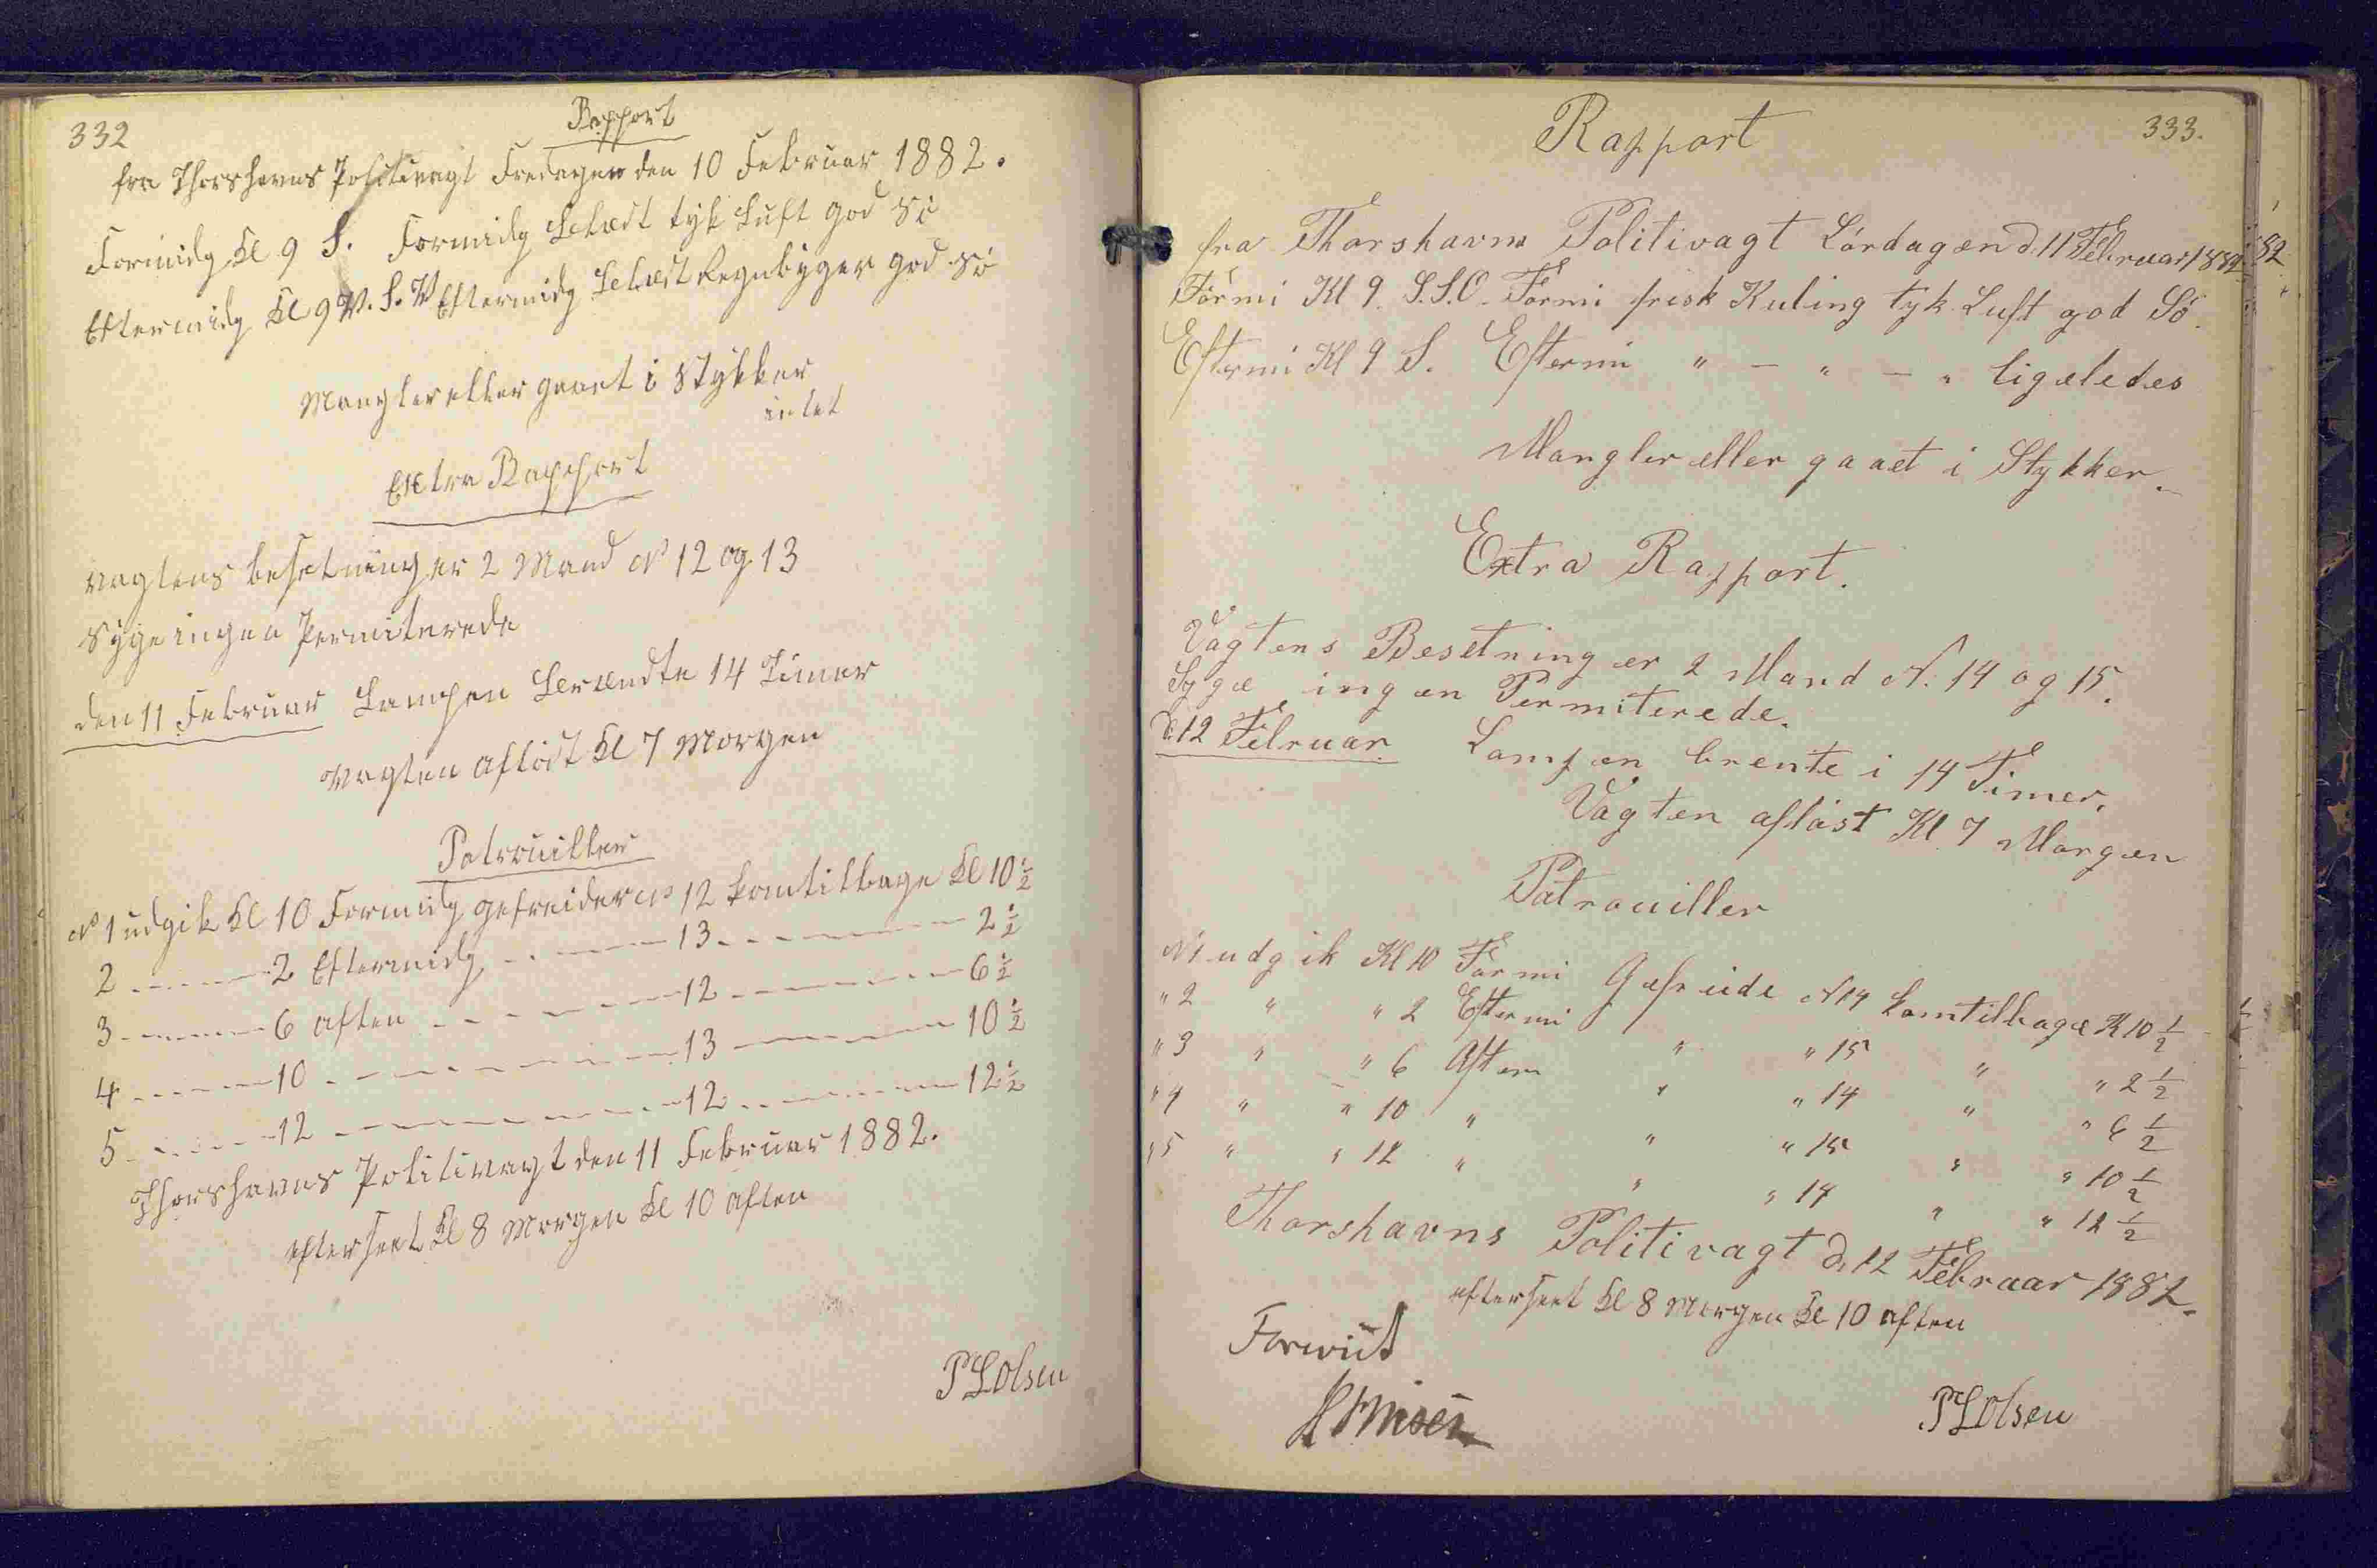 332
Rapport
fra Thorshavns Politivagt Fredagen den 10 Februar 1882.
Formidg Kl 9 S. Formidg Labædt tyk Luft god Sö
Eftermidg Kl 9 V.S.V Eftermidg Regnbyger god Sö
Mangler eller gaaet i Stykker
intet
Extra Rapport
Vagtens besetning er 2 Mand N° 12 og 13
Syge ingen Permiterede
den 11 Februar Lampen brændte 14 Timer
Vagten aflöst Kl 7 Morgen
Patrouiller
N° 1 udgik Kl 10 Formidg gefreider N° 12 kom tilbage Kl 10 1/2
2 - - - 2 Eftermidg - - - 13 - - - 2 1/2
3 - - - 6 aften - - - 12 - - - 6 1/2
4 - - - 10 - - - 13 - - - 10 1/2
5 - - - 12 - - - 12 - - - 12 1/2
Thorshavns Politivagt den 11 Februar 1882.
efterseet Kl 8 Morgen Kl 10 aften
P L Olsen
333.
Rapport
fra Thorshavns Politivagt Lördagen d. 11 Februar 1882
Formi Kl 9. S.S.O. Formi frisk Kuling tyk Luft god Sö.
Eftermi Kl 9 S. Eftermi " - " - " ligeledes
Mangler eller gaaet i Stykker.
Extra Rapport.
Vagtens Besetning er 2 Mand N. 14 og 15.
Syge ingen Permiterede.
d. 12 Februar. Lampen brente i 14 Timer.
Vagten aflöst Kl. 7 Morgen
Patrouiller
N1 udgik Kl 10 Formi Gefreide N 14 kom tilbage K 10 1/2
" 2 " " 2 Eftermi " " 15 " " 2 1/2
" 3 " " 6 Aften " " 14 " " 6 1/2
" 4 " " 10 " " " 15 " " 10 1/2
" 5 " " 12 " " " 14 " " 12 1/2
Thorshavns Politivagt d. 12 Februar 1882.
efterseet Kl 8 Morgen Kl 10 aften
Forevist
P L Olsen